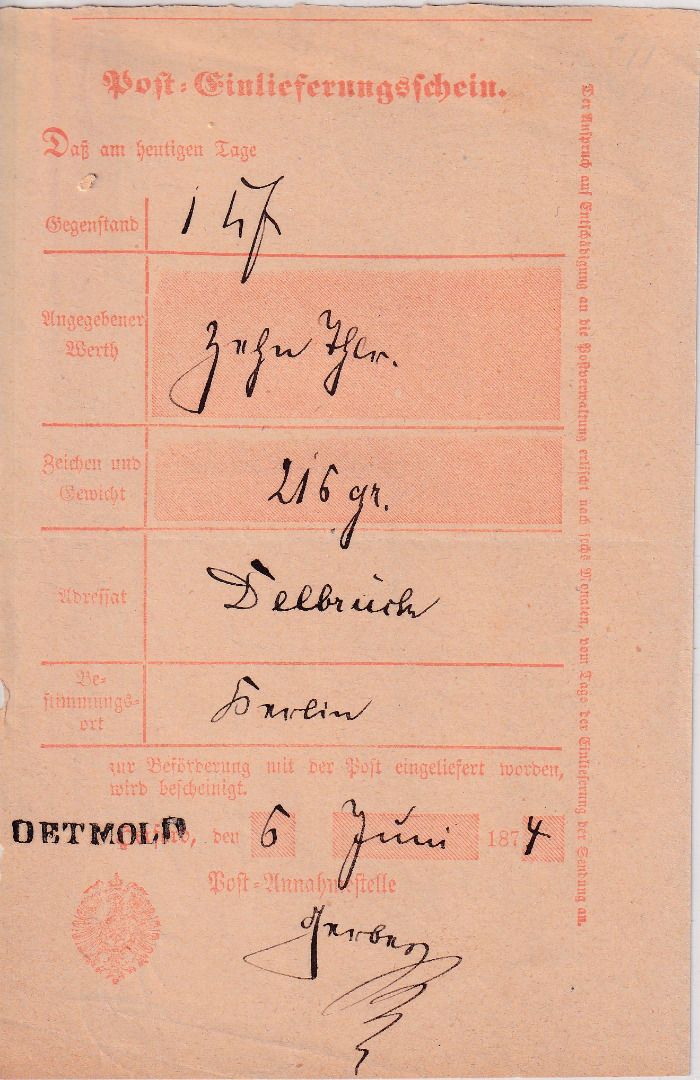 Post-Einlieferungsschein.
Daß am heutigen Tage
Gegenstand 1
Angegebener Werth Zehn Thlr.
Zeichen und Gewicht 216 gr.
Adressat Delbrück
Bestimmungsort Berlin
zur Beförderung mit der Post eingeliefert worden,
wird bescheinigt.
DETMOLD, den 6 Juni 1874
Post-Annahmestelle
Gerber
Der Anspruch auf Entschädigung an die Postverwaltung erlischt nach sechs Monaten, vom Tage der Einlieferung der Sendung an.